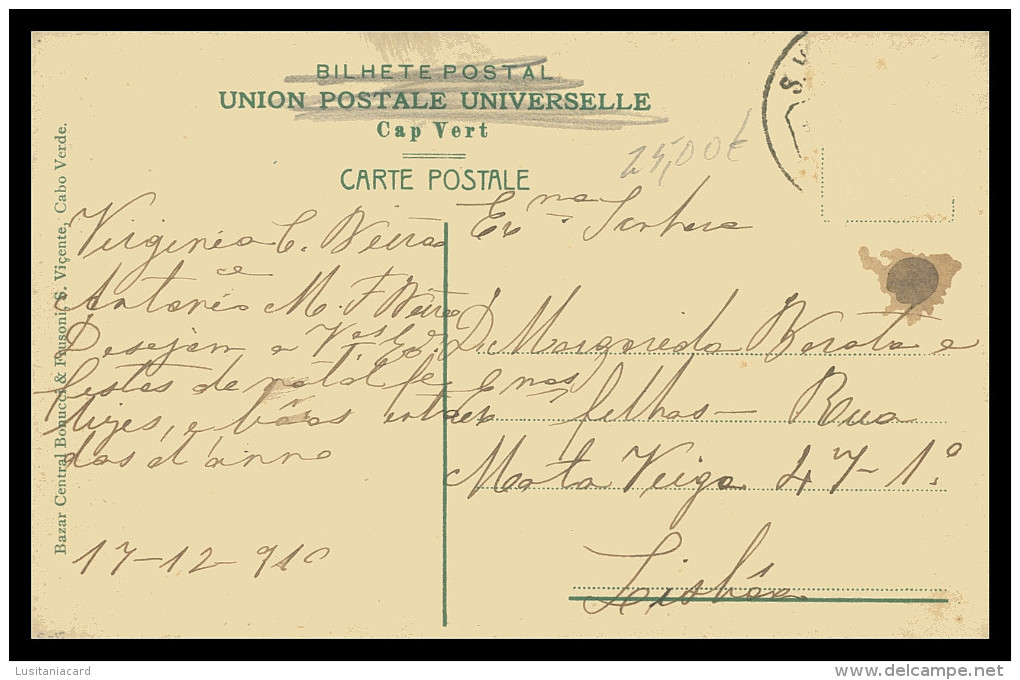 BILHETE POSTAL
UNION POSTALE UNIVERSELLE
Cap Vert
CARTE POSTALE
25,00€
S. V
Bazar Central Bonucci & Frusoni, S. Viçente, Cabo Verde.
Virginia C. Vieira
e
Antonio M. F. Vieira
Desejam a V.as Ex.as
festas de natal fe
lizes, e bôas entra
das d'anno
17-12-910
Ex.ma Senhora
D. Margarida Barata e
Ex.mas filhas — Rua
Marta Veiga 47-1º
Lisbôa
Lusitaniacard
delcampe.net